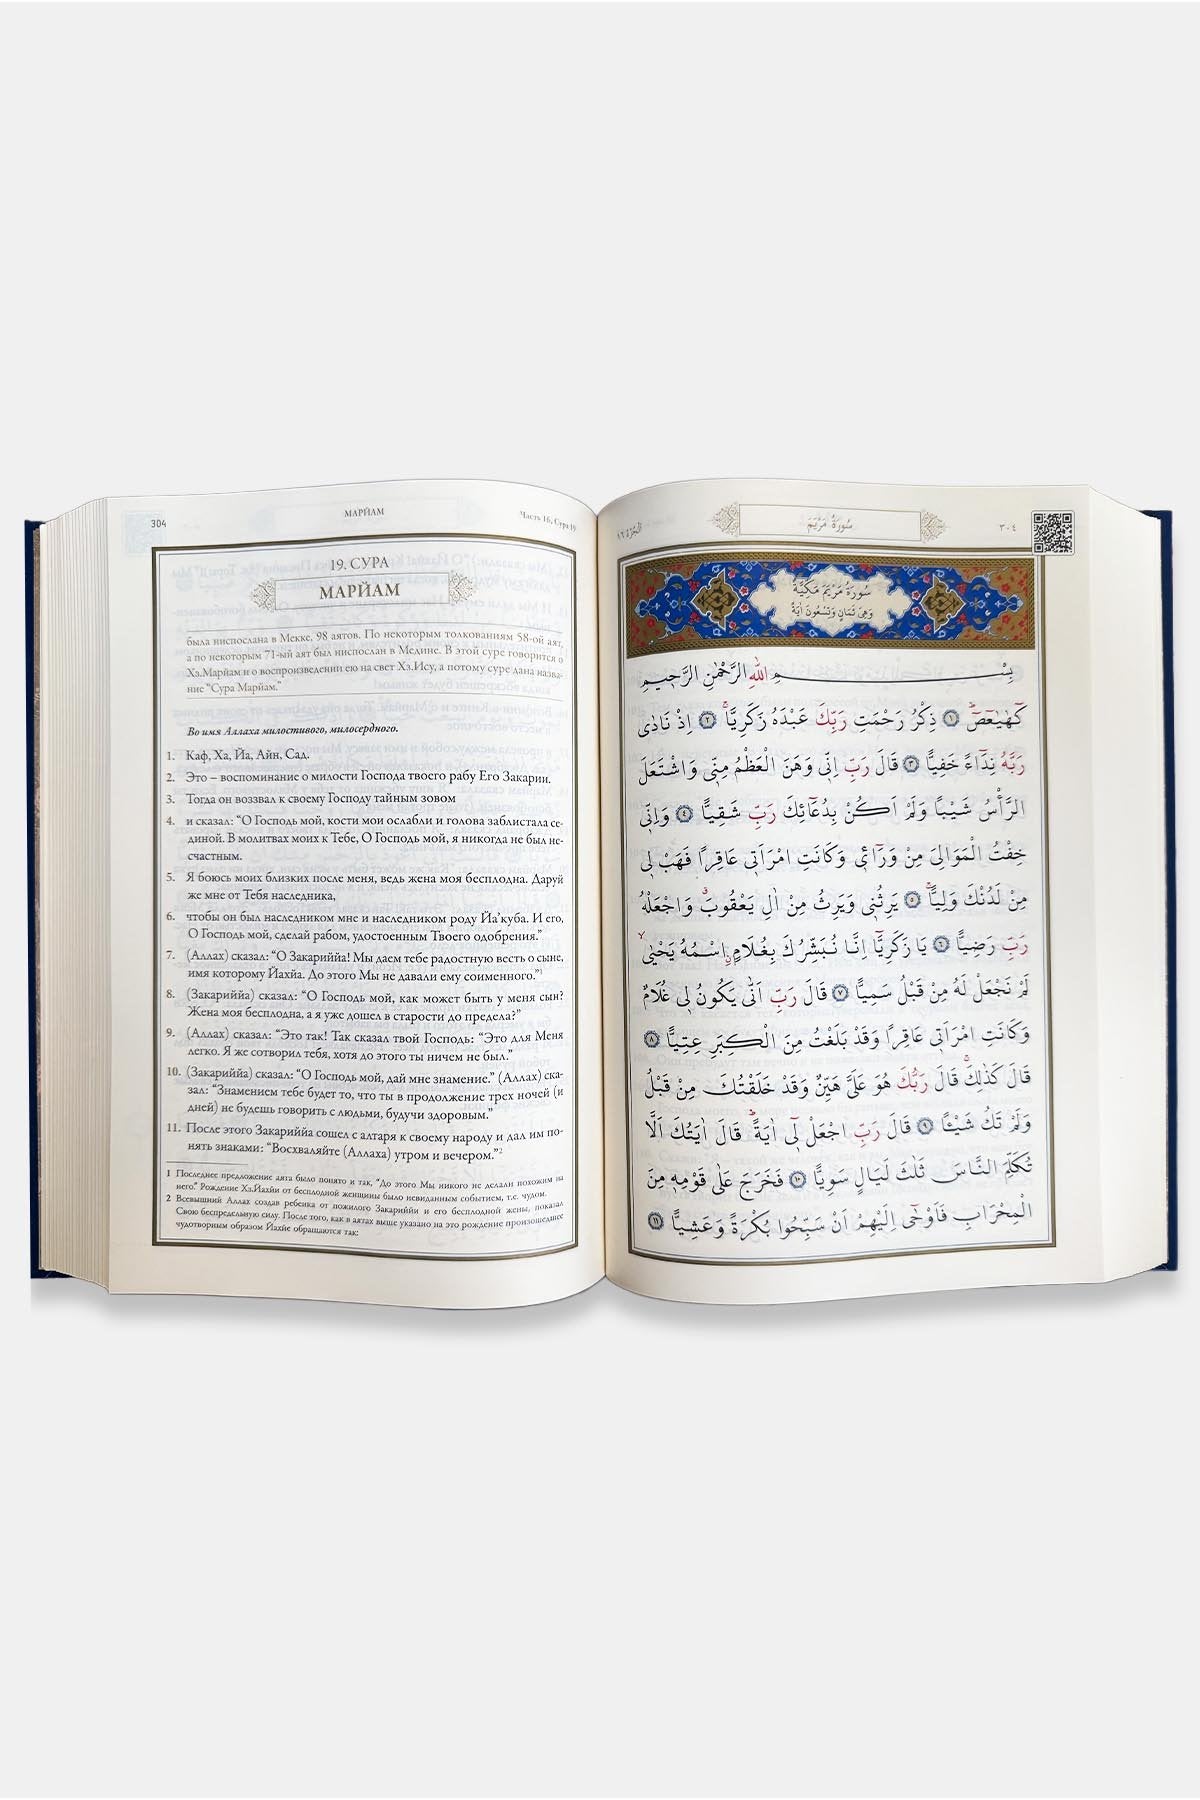 304
МАРЙАМ
Часть 16, Сура 19
19. СУРА
МАРЙАМ
была ниспослана в Мекке, 98 аятов. По некоторым толкованиям 58-ой аят,
а по некоторым 71-ый аят был ниспослан в Медине. В этой суре говорится о
Хз.Марйам и о воспроизведении ею на свет Хз.Ису, а потому суре дана назва-
ние “Сура Марйам.”
Во имя Аллаха милостивого, милосердного.
1. Каф, Ха, Йа, Айн, Сад.
2. Это – воспоминание о милости Господа твоего рабу Его Закарии.
3. Тогда он воззвал к своему Господу тайным зовом
4. и сказал: “О Господь мой, кости мои ослабли и голова заблистала се-
диной. В молитвах моих к Тебе, О Господь мой, я никогда не был не-
счастным.
5. Я боюсь моих близких после меня, ведь жена моя бесплодна. Даруй
же мне от Тебя наследника,
6. чтобы он был наследником мне и наследником роду Йа’куба. И его,
О Господь мой, сделай рабом, удостоенным Твоего одобрения.”
7. (Аллах) сказал: “О Закариййа! Мы даем тебе радостную весть о сыне,
имя которому Йахйа. До этого Мы не давали ему соименного.”1
8. (Закариййа) сказал: “О Господь мой, как может быть у меня сын?
Жена моя бесплодна, а я уже дошел в старости до предела?”
9. (Аллах) сказал: “Это так! Так сказал твой Господь: “Это для Меня
легко. Я же сотворил тебя, хотя до этого ты ничем не был.”
10. (Закариййа) сказал: “О Господь мой, дай мне знамение.” (Аллах) ска-
зал: “Знамением тебе будет то, что ты в продолжение трех ночей (и
дней) не будешь говорить с людьми, будучи здоровым.”
11. После этого Закариййа сошел с алтаря к своему народу и дал им по-
нять знаками: “Восхваляйте (Аллаха) утром и вечером.”2
1 Последнее предложение аята было понято и так, “До этого Мы никого не делали похожим на
него.” Рождение Хз.Йахйи от бесплодной женщины было невиданным событием, т.е. чудом.
2 Всевышний Аллах создав ребенка от пожилого Закариййи и его бесплодной жены, показал
Свою беспредельную силу. После того, как в аятах выше указано на это рождение произошедшее
чудотворным образом Йахйе обращаются так:
سُورَةُ مَرْيَمَ
٣٠٤
سُورَةُ مَرْيَمَ مَكِّيَّةٌ
وَهِيَ ثَمَانٍ وَتِسْعُونَ اٰيَةً
بِسْمِ اللّٰهِ الرَّحْمٰنِ الرَّحِيمِ
كٓهٰيٰعٓصٓ ﴿١﴾ ذِكْرُ رَحْمَتِ رَبِّكَ عَبْدَهُ زَكَرِيَّاۚ ﴿٢﴾ اِذْ نَادٰى
رَبَّهُ نِدَٓاءً خَفِيًّا ﴿٣﴾ قَالَ رَبِّ اِنّ۪ي وَهَنَ الْعَظْمُ مِنّ۪ي وَاشْتَعَلَ
الرَّأْسُ شَيْبًا وَلَمْ اَكُنْ بِدُعَٓائِكَ رَبِّ شَقِيًّا ﴿٤﴾ وَاِنّ۪ي
خِفْتُ الْمَوَالِيَ مِنْ وَرَٓاء۪ي وَكَانَتِ امْرَاَت۪ي عَاقِرًا فَهَبْ ل۪ي
مِنْ لَدُنْكَ وَلِيًّاۙ ﴿٥﴾ يَرِثُن۪ي وَيَرِثُ مِنْ اٰلِ يَعْقُوبَۗ وَاجْعَلْهُ
رَبِّ رَضِيًّا ﴿٦﴾ يَا زَكَرِيَّٓا اِنَّا نُبَشِّرُكَ بِغُلَامٍۨ اسْمُهُ يَحْيٰىۙ
لَمْ نَجْعَلْ لَهُ مِنْ قَبْلُ سَمِيًّا ﴿٧﴾ قَالَ رَبِّ اَنّٰى يَكُونُ ل۪ي غُلَامٌ
وَكَانَتِ امْرَاَت۪ي عَاقِرًا وَقَدْ بَلَغْتُ مِنَ الْكِبَرِ عِتِيًّا ﴿٨﴾
قَالَ كَذٰلِكَۚ قَالَ رَبُّكَ هُوَ عَلَيَّ هَيِّنٌ وَقَدْ خَلَقْتُكَ مِنْ قَبْلُ
وَلَمْ تَكُ شَيْـًٔا ﴿٩﴾ قَالَ رَبِّ اجْعَلْ ل۪ٓي اٰيَةًۜ قَالَ اٰيَتُكَ اَلَّا
تُكَلِّمَ النَّاسَ ثَلٰثَ لَيَالٍ سَوِيًّا ﴿١٠﴾ فَخَرَجَ عَلٰى قَوْمِه۪ مِنَ
الْمِحْرَابِ فَاَوْحٰٓى اِلَيْهِمْ اَنْ سَبِّحُوا بُكْرَةً وَعَشِيًّا ﴿١١﴾